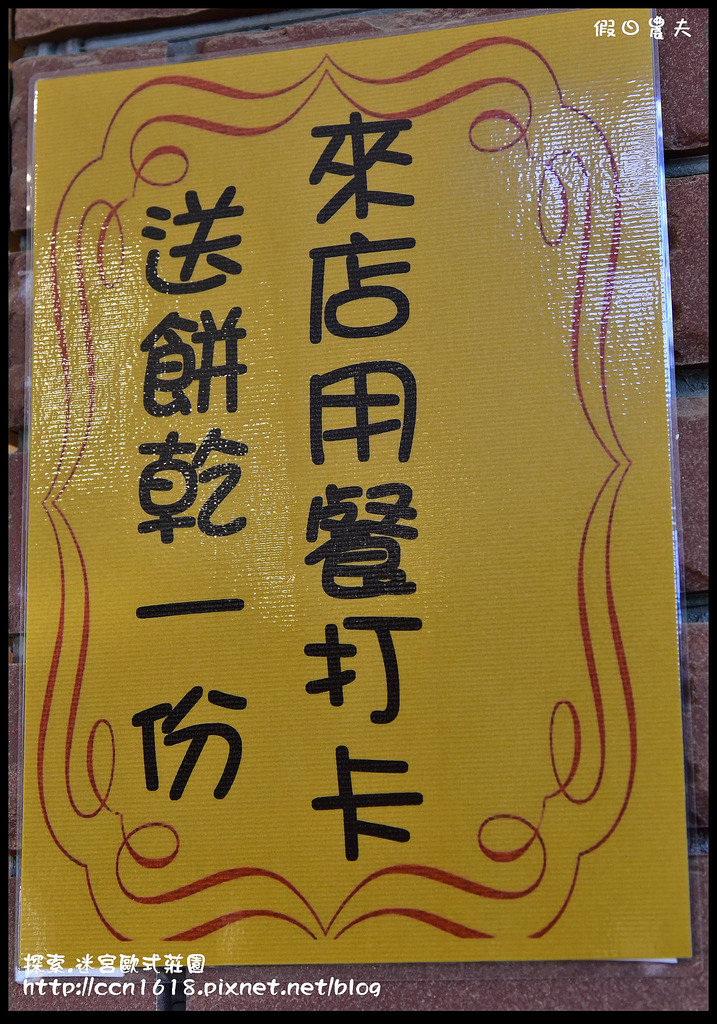 假日農夫
來店用餐打卡
送餅乾一份
探索.迷宮歐式莊園
http://ccn1618.pixnet.net/blog